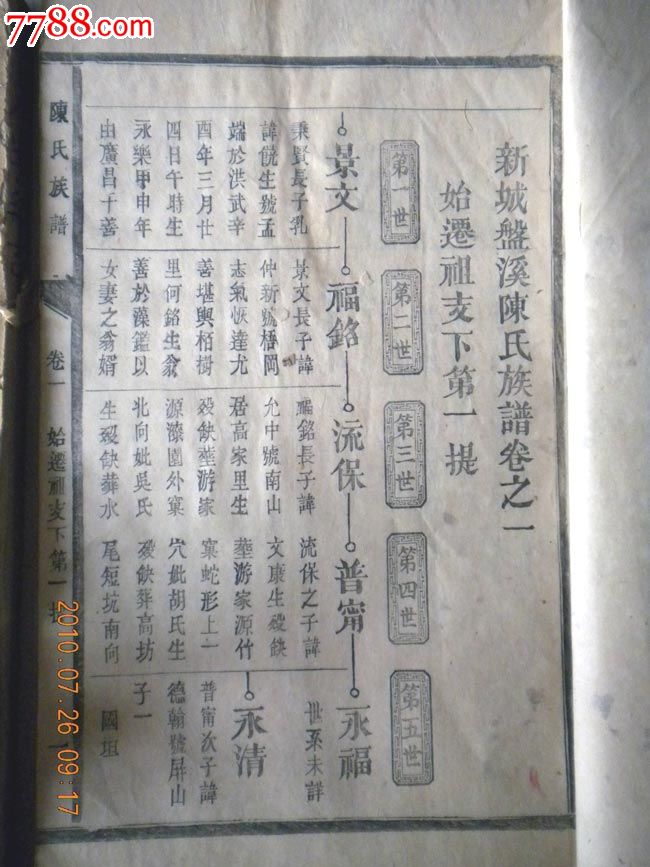 7788.com
新城盤溪陳氏族譜卷之一
始遷祖支下第一提
第一世
第二世
第三世
第四世
第五世
景文
福銘
流保
普甯
永福
秉賢長子乳
諱侊生號孟
端於洪武辛
酉年三月廿
四日午時生
永樂甲申年
由廣昌千善
景文長子諱
仲新號梧岡
志氣恢達尤
善堪輿栢樹
里何銘生翁
善於藻鑑以
女妻之翁婿
福銘長子諱
允中號南山
居高家里生
歿缺塟游家
源漆園外窠
北向妣吳氏
生歿缺葬水
流保之子諱
文康生歿缺
塟游家源竹
窠蛇形上一
穴妣胡氏生
歿缺葬高坊
尾短坑南向
世系未詳
永清
普甯次子諱
德翰號屏山
子一
國垣
陳氏族譜
卷一
始遷祖支下第一提
一
2010.07.26 09:17